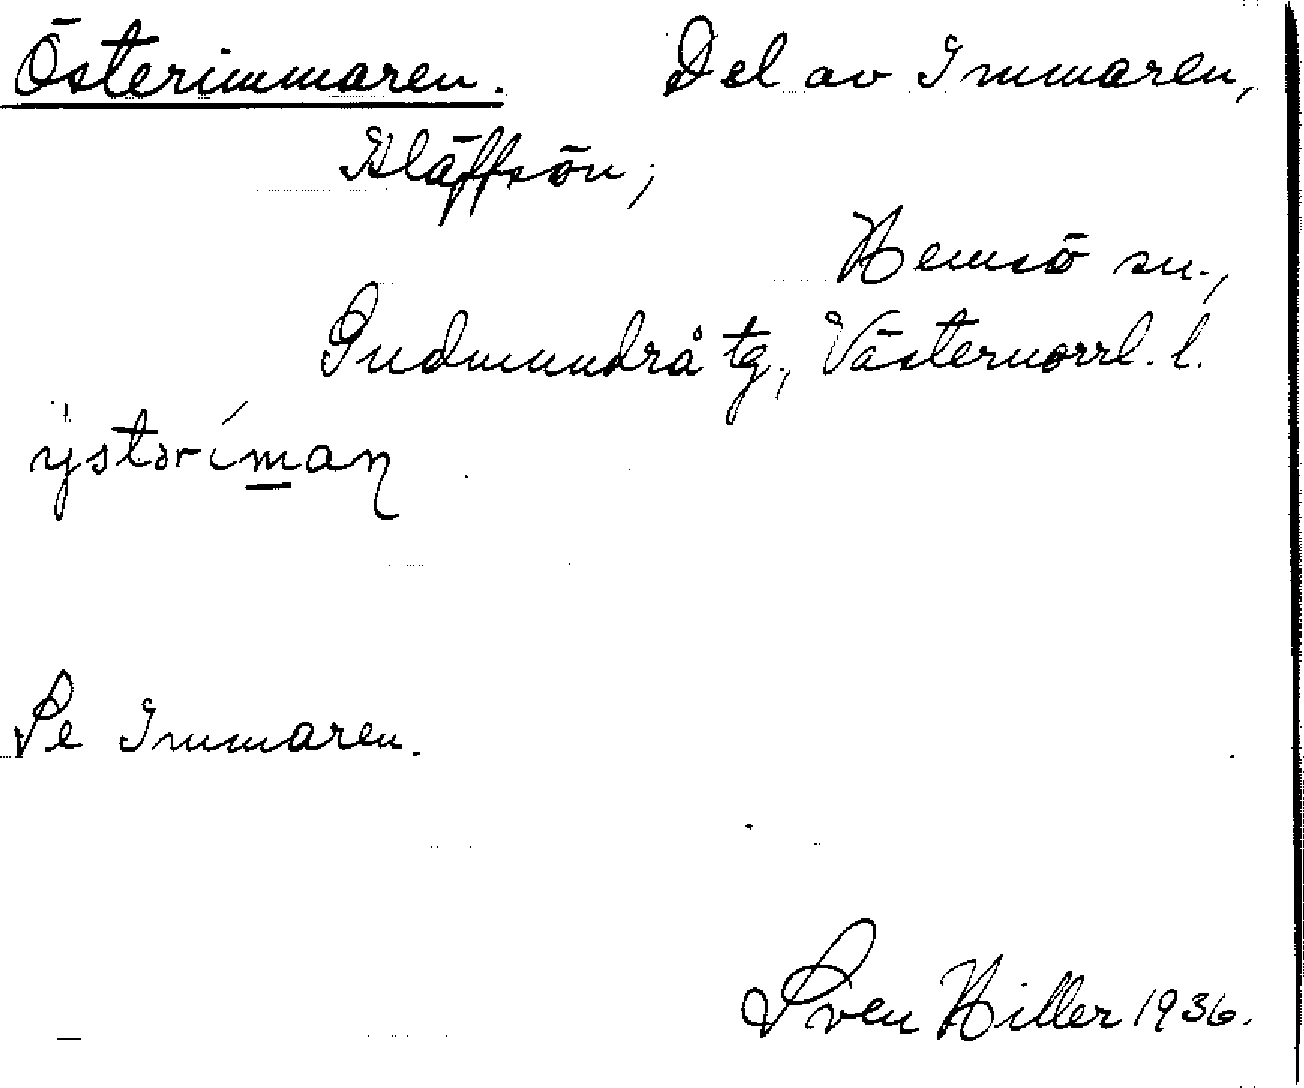 Österimmaren. Del av Immaren,
Kläffsön;
Hemsö sn.,
Gudmundrå tg., Västernorrl. l.
ÿstər íman
Se Immaren.
Sven Hiller 1936.